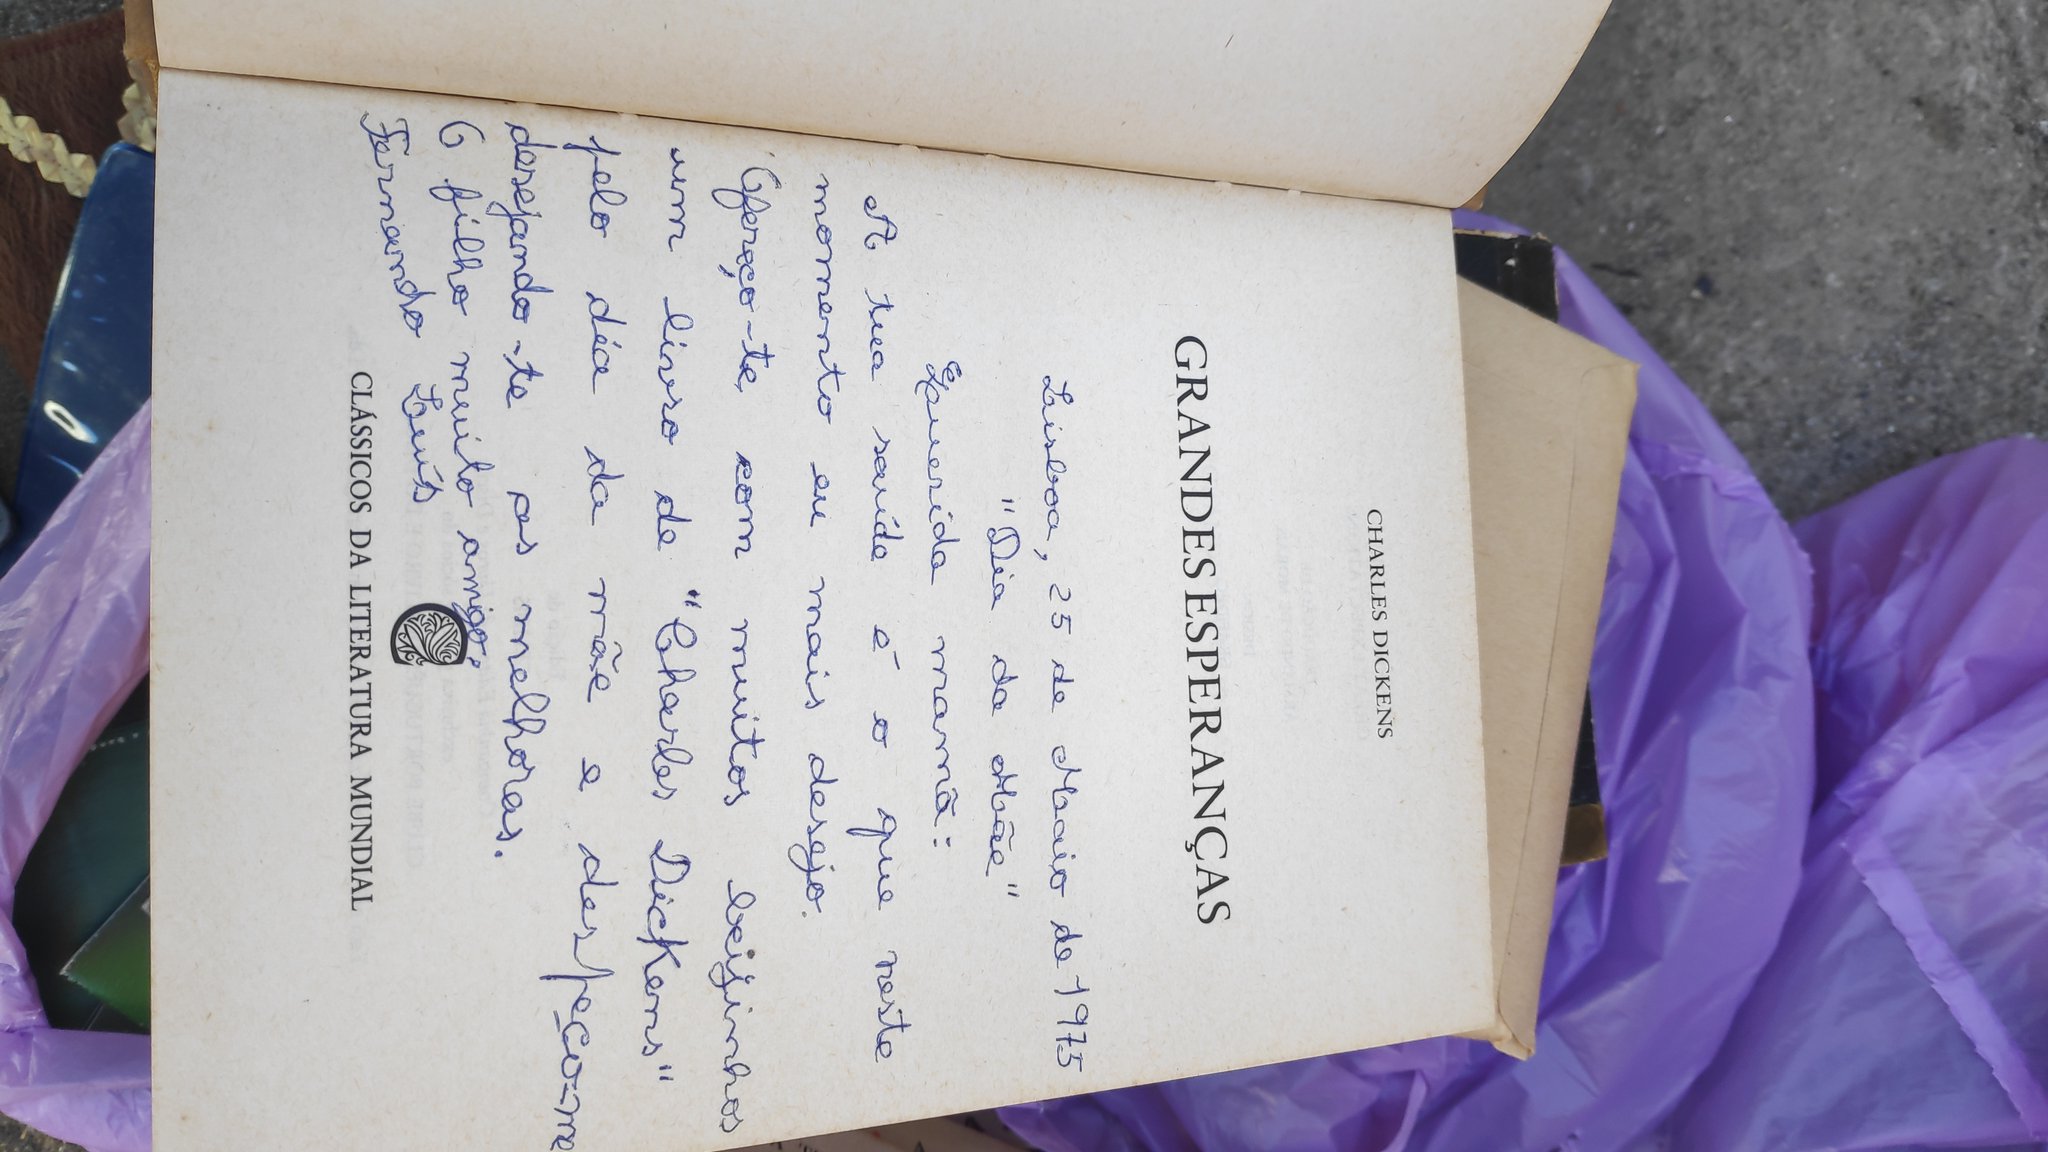 CHARLES DICKENS
GRANDES ESPERANÇAS
Lisboa, 25 de Maio de 1975
"Dia da Mãe"
Querida mamã:
A tua saúde é o que neste
momento eu mais desejo.
Ofereço-te, com muitos beijinhos
um livro de "Charles Dickens"
pelo dia da mãe e despeço-me
desejando-te as melhoras.
O filho muito amigo,
Fernando Luís
CLÁSSICOS DA LITERATURA MUNDIAL